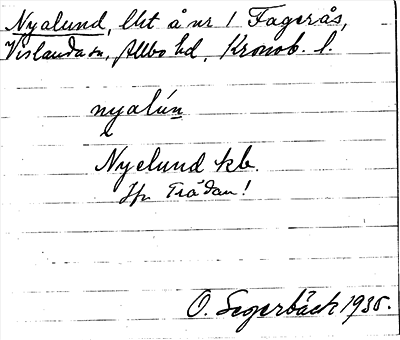 Nyalund, lht å nr 1 Fagerås,
Vislanda sn, Allbo hd, Kronob. l.
nyalún
Nyelund kb.
Jfr Trådan!
O. Segerbäck 1935.